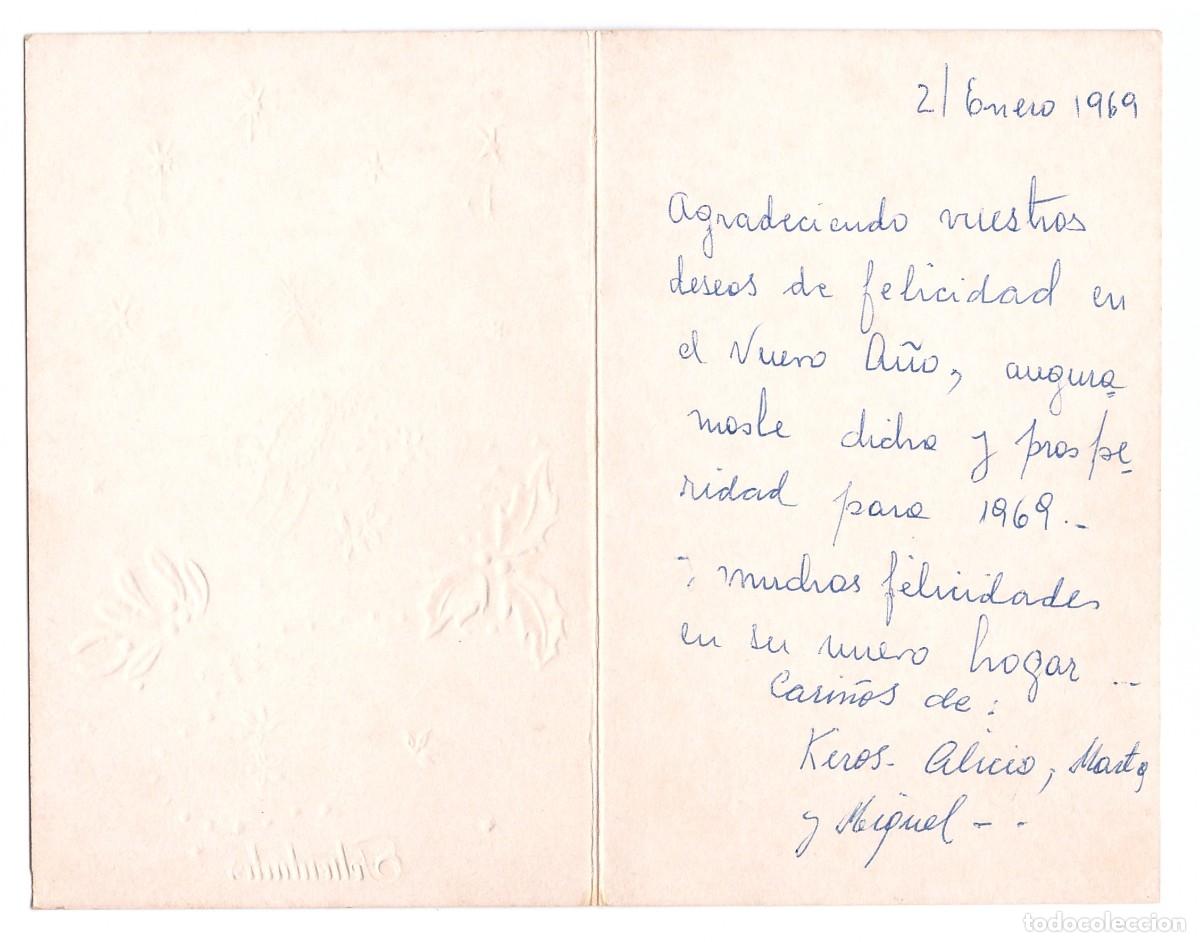 2/ Enero 1969
Agradeciendo vuestros
deseos de felicidad en
el Nuevo Año, augura=
mosle dicha y prospe=
ridad para 1969.-
y muchas felicidades
en su nuevo hogar --
Cariños de:
Keros- Alicia, Marta,
y Miguel - - -
Felicidades
todocoleccion